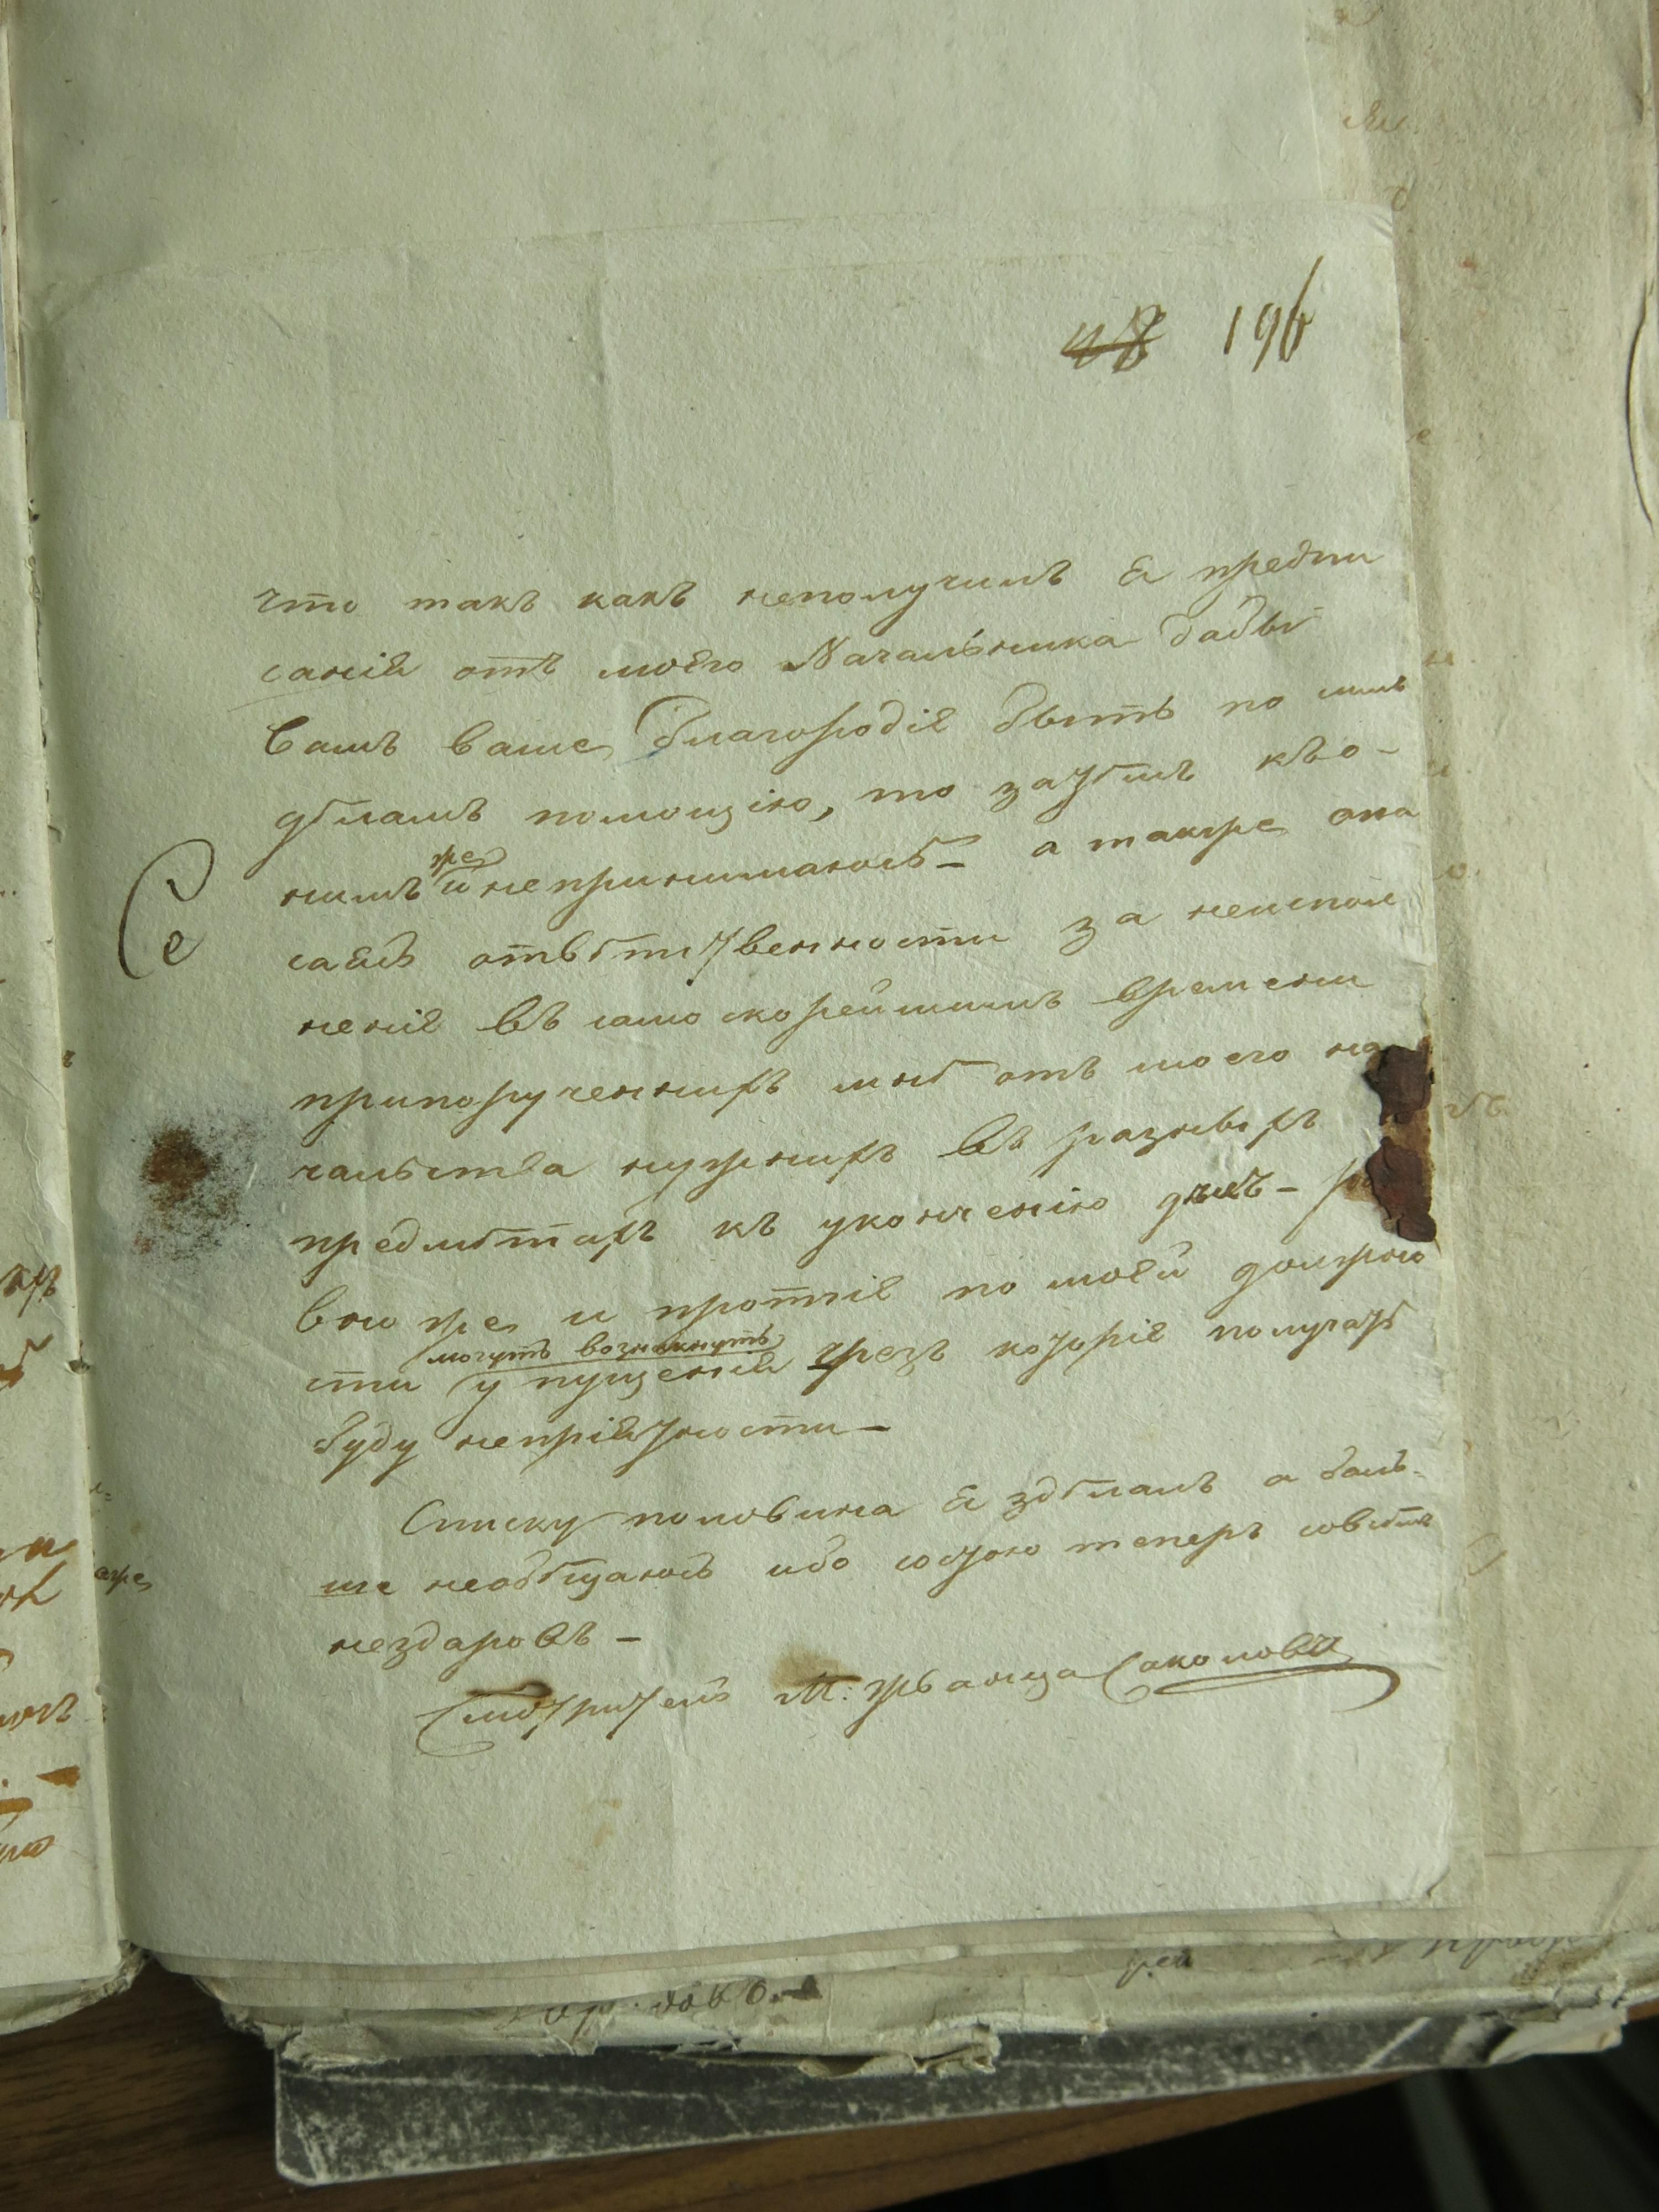 196
что такъ какъ неполучилъ я предпи
санія отъ моего Начальника дабы
Вамъ ваше Благородіе быть по симъ
дѣламъ помощію, то затѣмъ къ о-
нимъ же и непринимаюсь - а также опа
саясь отвѣтственности за неиспол
неніе въ само скорейшимъ времени
припорученнихъ мнѣ отъ моего на
чальства нужнихъ въ разныхъ
предмѣтахъ къ уконченію дѣлъ -
вно же и протчіе по моей должно
сти могутъ вознкнуть упущенія чрезъ которіе получать
буду непріятности -
Списку половина я здѣлалъ а боль-
ше необѣщаюсь ибо состою теперъ совсѣмъ
нездаровъ -
Смотритель М: Жванца Саколовъ